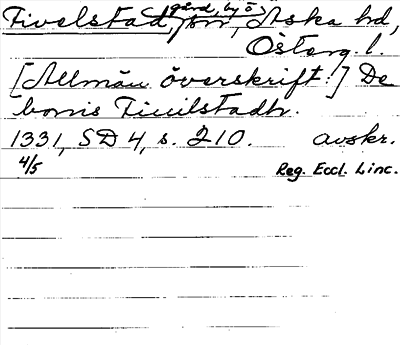 Tivelstad, (gård, by ö) bn, Aska hd,
Österg. l.
[Allmän överskrift:] De
bonis Tiuilstadh.
1331, SD 4, s. 210. avskr.
4/5 Reg. Eccl. Linc.